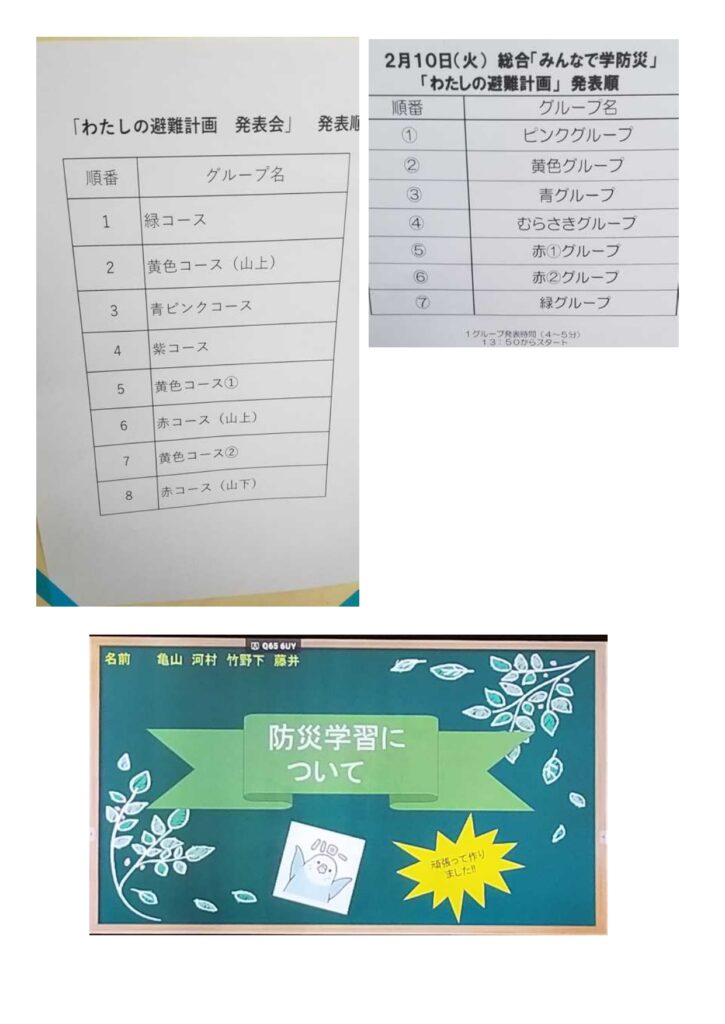 「わたしの避難計画 発表会」 発表順
順番 グループ名
1 緑コース
2 黄色コース（山上）
3 青ピンクコース
4 紫コース
5 黄色コース①
6 赤コース（山上）
7 黄色コース②
8 赤コース（山下）
2月10日（火） 総合「みんなで学防災」
「わたしの避難計画」 発表順
順番 グループ名
① ピンクグループ
② 黄色グループ
③ 青グループ
④ むらさきグループ
⑤ 赤①グループ
⑥ 赤②グループ
⑦ 緑グループ
１グループ発表時間（４～５分）
１３：５０からスタート
Q65 6UY
名前 亀山 河村 竹野下 藤井
防災学習に
ついて
ハロー
頑張って作り
ました!!